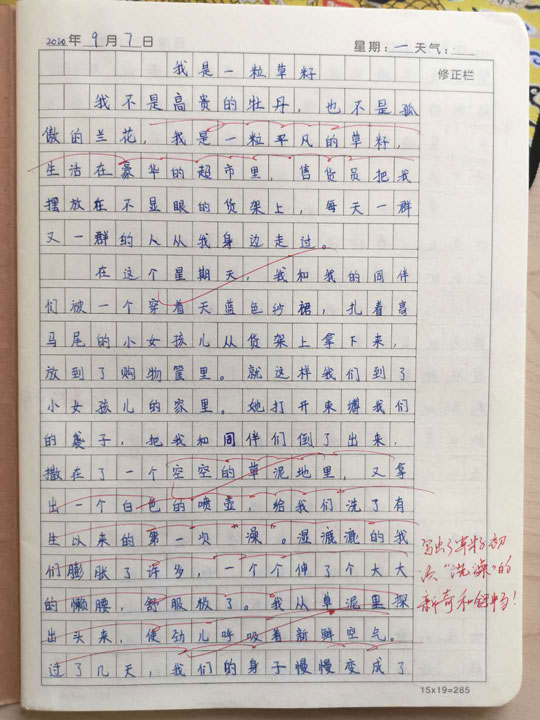 2020年 9月 7日 星期:一 天气:
修正栏
我是一粒草籽
我不是高贵的牡丹，也不是孤
傲的兰花，我是一粒平凡的草籽，
生活在豪华的超市里，售货员把我
摆放在不显眼的货架上，每天一群
又一群的人从我身边走过。
在这个星期天，我和我的同伴
们被一个穿着天蓝色纱裙，扎着高
马尾的小女孩儿从货架上拿下来，
放到了购物筐里。就这样我们到了
小女孩儿的家里。她打开束缚我们
的袋子，把我和同伴们倒了出来，
撒在了一个空空的草泥地里，又拿
出一个白色的喷壶，给我们洗了有
生以来的第一次“澡”。湿漉漉的我
们膨胀了许多，一个个伸了个大大
的懒腰，舒服极了。我从草泥里探
出头来，使劲儿呼吸着新鲜空气。
过了几天，我们的身子慢慢变成了
写出了草籽初
次“洗澡”的
新奇和舒畅！
15×19=285